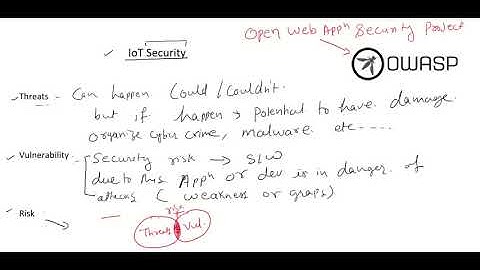 Open Web Appn Security Project
IoT Security
OWASP
Threats - Can happen Could / Couldn't.
but if happen → Potential to have damage.
organize cyber crime, malware etc----.
Vulnerability - Security risk → S/W
due to this Appn or dev is in danger. of
attacks ( weakness or graps)
Risk
risk
Threats Vul.